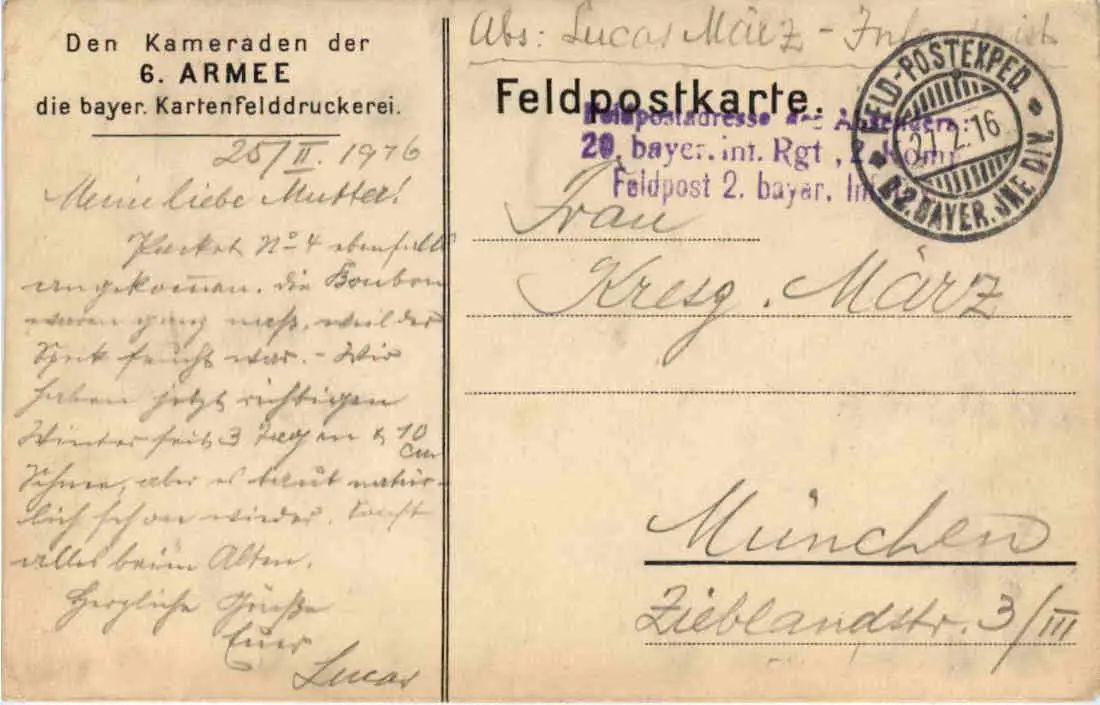 Den Kameraden der
6. ARMEE
die bayer. Kartenfelddruckerei.
25/II. 1916
Meine liebe Mutter!
Packet No 4 ebenfalls
angekommen. die Bonbon
waren ganz naß, weil der
Speck feucht war. - Wir
haben jetzt richtigen
Winter seit 3 Tagen & 10 cm
Schnee, aber es taut natür-
lich schon wieder. Sonst
alles beim Alten.
Herzliche Grüße
Euer
Lucas
Abs: Lucas März -
Feldpostkarte.
Feldpostadresse des Absenders
20. bayer. inf. Rgt., 2. Komp
Feldpost 2. bayer. Inf.
FELD-POSTEXPED.
27.2.16
D. 2. BAYER. JNF. DIV.
Frau
Kresz. März
München
Zieblandstr. 3/III